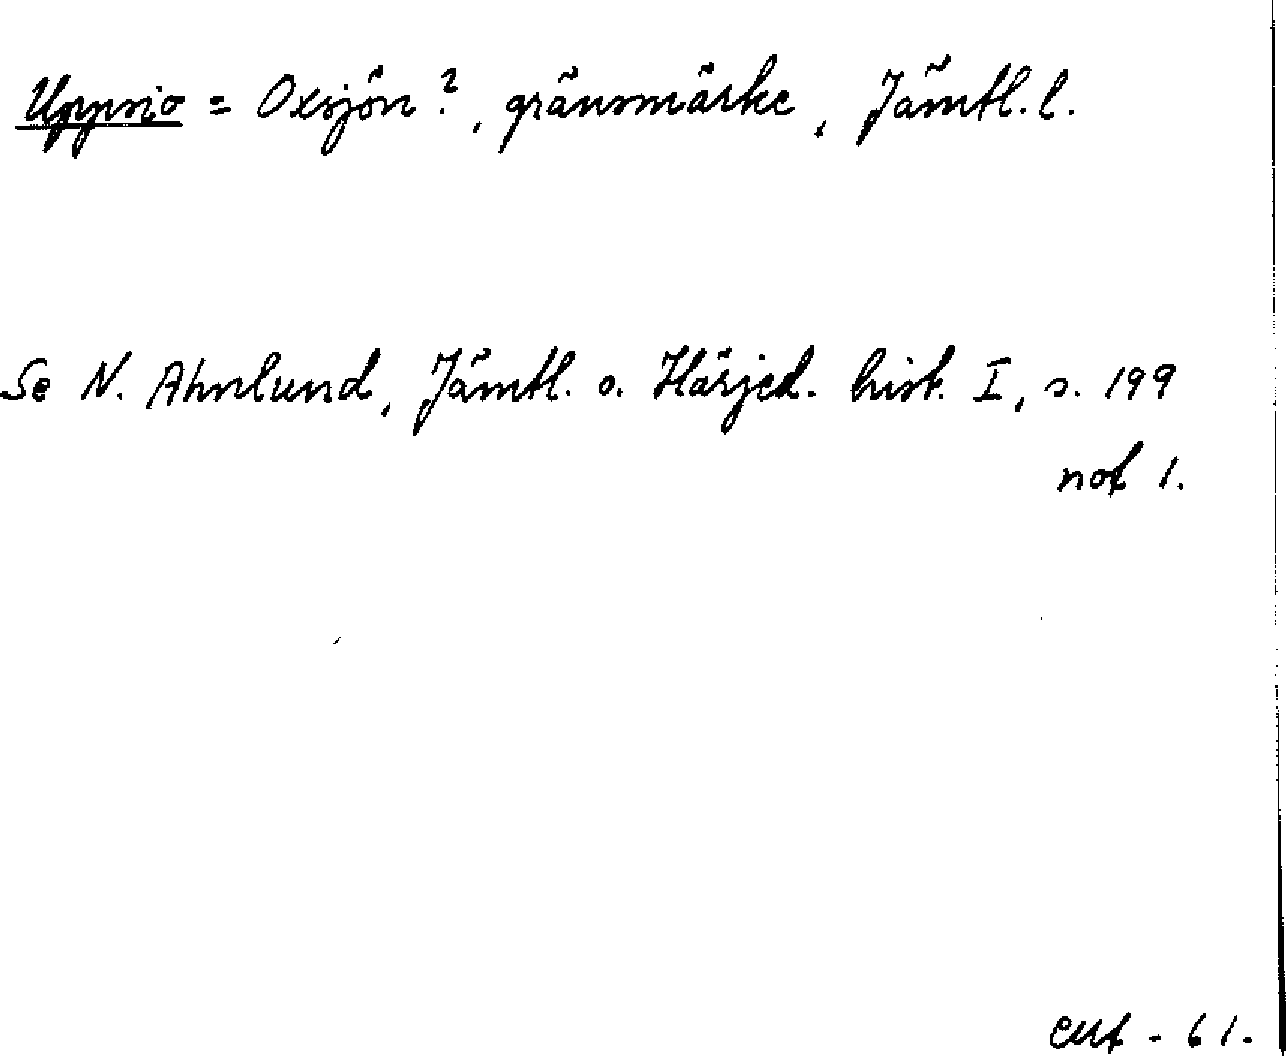 Uppsio = Oxsjön?, gränsmärke, Jämtl. l.
Se N. Ahnlund, Jämtl. o. Härjed. hist. I, s. 199
not 1.
- 61.